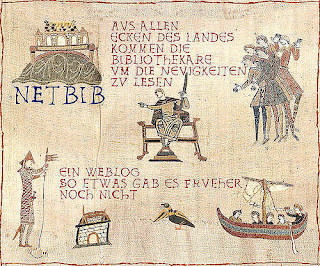 AUS ALLEN
ECKEN DES LANDES
KOMMEN DIE
BIBLIOTHEKARE
VM DIE NEVIGKEITEN
ZV LESEN
NETBIB
EIN WEBLOG
SO ETWAS GAB ES FRVEHER
NOCH NICHT